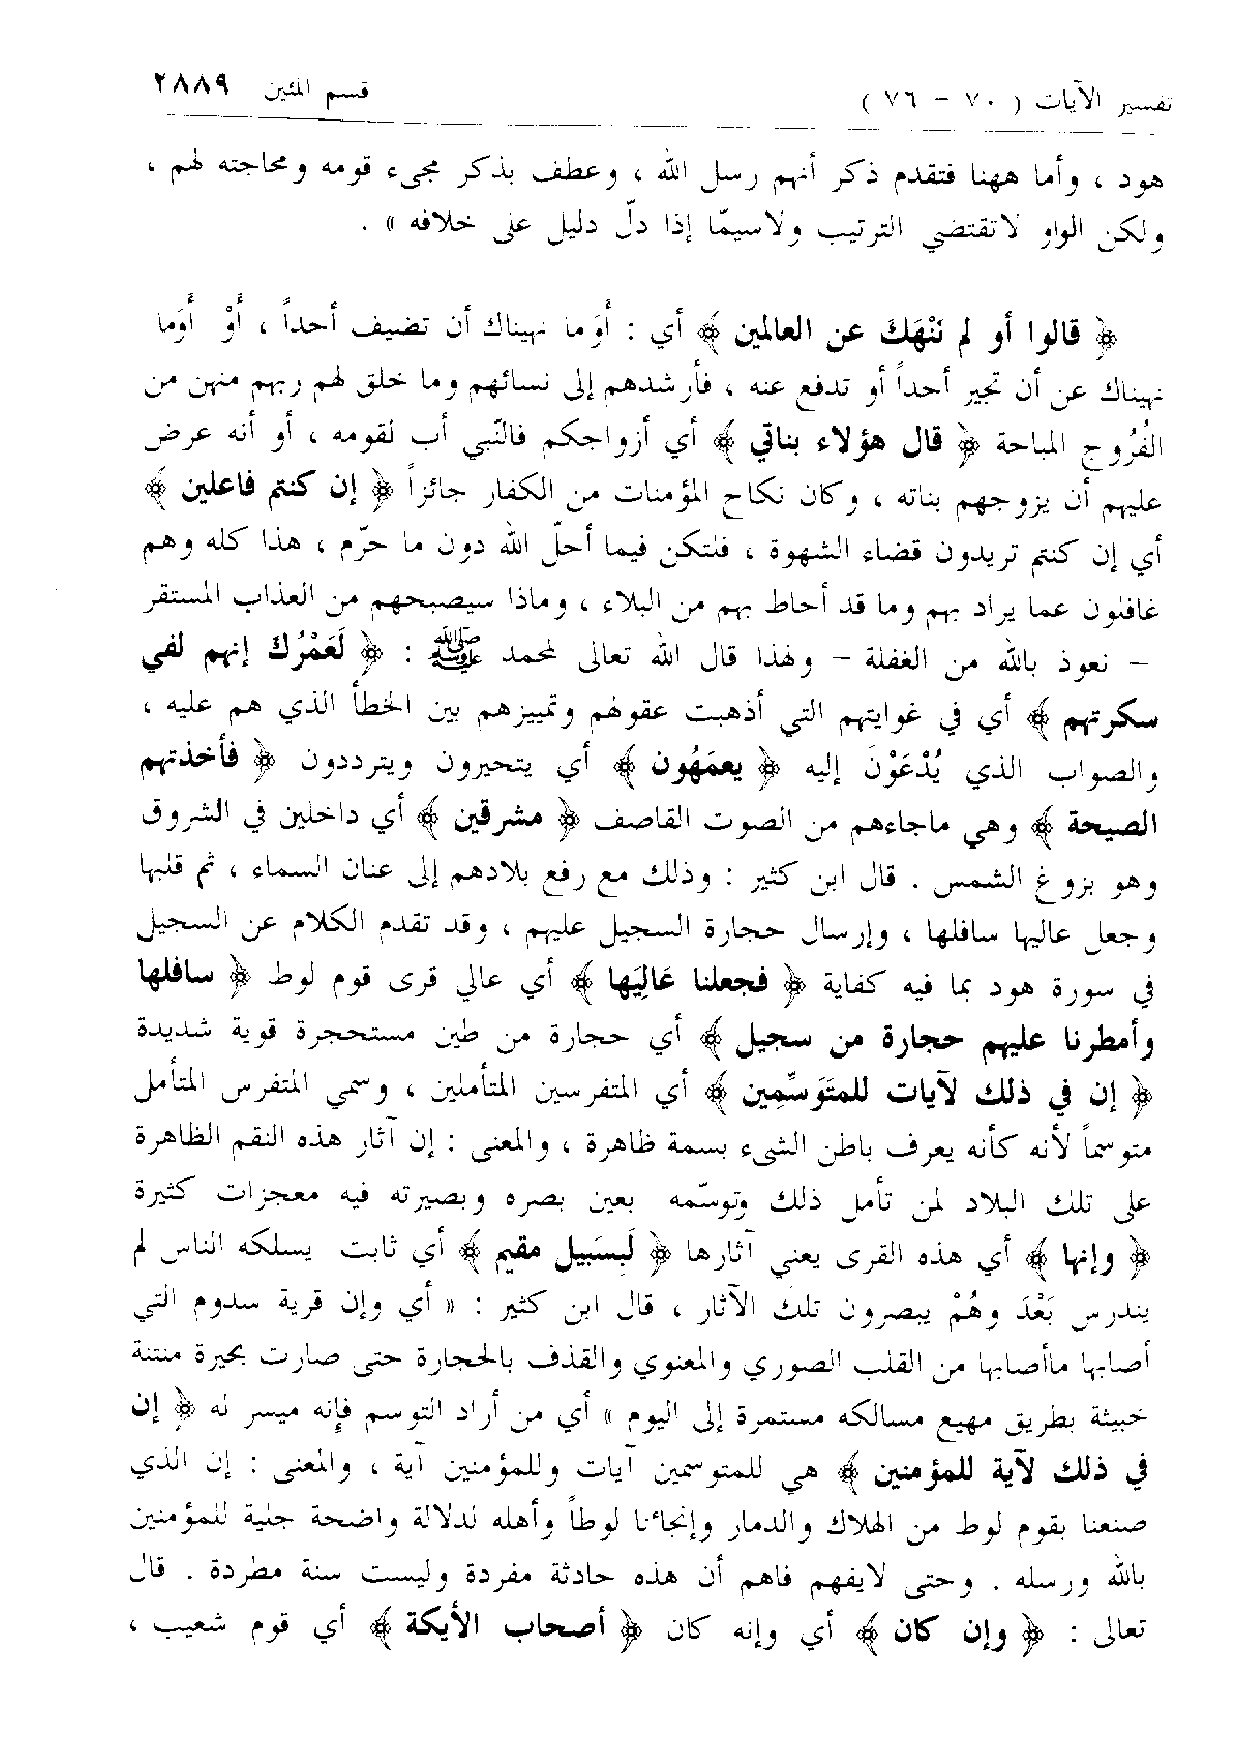 تفسير الآيات ( ٧٠ - ٧٦ ) قسم المئين ٢٨٨٩
هود ، وأما ههنا فتقدم ذكر أنهم رسل الله ، وعطف بذكر مجيء قومه ومحاجته لهم ،
ولكن الواو لاتقتضي الترتيب ولاسيمّا إذا دلّ دليل على خلافه » .
﴿ قالوا أو لم نَنْهَكَ عن العالمين ﴾ أي : أوَما نهيناك أن تضيف أحداً ، أوْ أوَما
نهيناك عن أن تجير أحداً أو تدفع عنه ، فأرشدهم إلى نسائهم وما خلق لهم ربهم منهن من
الفُرُوج المباحة ﴿ قال هؤلاء بناتي ﴾ أي أزواجكم فالنّبي أب لقومه ، أو أنه عرض
عليهم أن يزوجهم بناته ، وكان نكاح المؤمنات من الكفار جائزاً ﴿ إن كنتم فاعلين ﴾
أي إن كنتم تريدون قضاء الشهوة ، فلتكن فيما أحلّ الله دون ما حرّم ، هذا كله وهم
غافلون عما يراد بهم وما قد أحاط بهم من البلاء ، وماذا سيصبحهم من العذاب المستقر
– نعوذ بالله من الغفلة – ولهذا قال الله تعالى لمحمد ﷺ : ﴿ لَعَمْرُك إنهم لفي
سكرتهم ﴾ أي في غوايتهم التي أذهبت عقولهم وتمييزهم بين الخطأ الذي هم عليه ،
والصواب الذي يُدْعَوْنَ إليه ﴿ يعمَهُون ﴾ أي يتحيرون ويترددون ﴿ فأخذتهم
الصيحة ﴾ وهي ماجاءهم من الصوت القاصف ﴿ مشرقين ﴾ أي داخلين في الشروق
وهو بزوغ الشمس . قال ابن كثير : وذلك مع رفع بلادهم إلى عنان السماء ، ثم قلبها
وجعل عاليها سافلها ، وإرسال حجارة السجيل عليهم ، وقد تقدم الكلام عن السجيل
في سورة هود بما فيه كفاية ﴿ فجعلنا عَالِيَها ﴾ أي عالي قرى قوم لوط ﴿ سافلها
وأمطرنا عليهم حجارة من سجيل ﴾ أي حجارة من طين مستحجرة قوية شديدة
﴿ إن في ذلك لآيات للمتَوَسِّمِين ﴾ أي المتفرسين المتأملين ، وسمي المتفرس المتأمل
متوسماً لأنه كأنه يعرف باطن الشيء بسمة ظاهرة ، والمعنى : إن آثار هذه النقم الظاهرة
على تلك البلاد لمن تأمل ذلك وتوسّمه بعين بصره وبصيرته فيه معجزات كثيرة
﴿ وإنها ﴾ أي هذه القرى يعني آثارها ﴿ لَبِسَبيل مقيم ﴾ أي ثابت يسلكه الناس لم
يندرس بَعْدَ وهُمْ يبصرون تلك الآثار ، قال ابن كثير : « أي وإن قرية سدوم التي
أصابها ماأصابها من القلب الصوري والمعنوي والقذف بالحجارة حتى صارت بحيرة منتنة
خبيثة بطريق مهيع مسالكه مستمرة إلى اليوم » أي من أراد التوسم فإنه ميسر له ﴿ إن
في ذلك لآية للمؤمنين ﴾ هي للمتوسمين آيات وللمؤمنين آية ، والمعنى : إن الذي
صنعنا بقوم لوط من الهلاك والدمار وإنجائنا لوطاً وأهله لدلالة واضحة جلية للمؤمنين
بالله ورسله . وحتى لايفهم فاهم أن هذه حادثة مفردة وليست سنة مطردة . قال
تعالى : ﴿ وإن كان ﴾ أي وإنه كان ﴿ أصحاب الأيكة ﴾ أي قوم شعيب ،